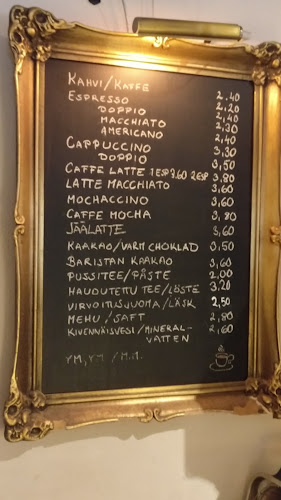 KAHVI/KAFFE 2.40
ESPRESSO 2,20
DOPPIO 2,40
MACCHIATO 2,30
AMERICANO 2,40
CAPPUCCINO 3,30
DOPPIO 3,50
CAFFE LATTE 1ESP 3.60 2ESP 3,80
LATTE MACCHIATO 3,60
MOCHACCINO 3,60
CAFFE MOCHA 3,80
JÄÄLATTE 3,60
KAAKAO/VARM CHOKLAD 3,50
BARISTAN KAAKAO 3,60
PUSSITEE/PÅSTE 2,00
HAUDUTETTU TEE/LÖSTE 3.20
VIRVOITUSJUOMA/LÄSK 2,50
MEHU/SAFT 2,80
KIVENNÄISVESI/MINERAL- 2,60
VATTEN
YM, YM / M.M.